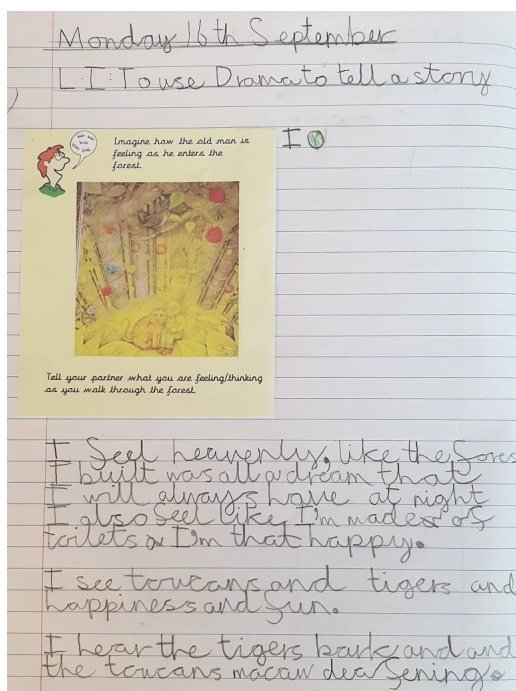 Monday 16th September
L.I: To use Drama to tell a story
I
blah blah
blah
blah blah
Imagine how the old man is
feeling as he enters the
forest.
Tell your partner what you are feeling/thinking
as you walk through the forest.
I feel heavenly, like the fores
I built was all a dream that
I will always have at night
I also feel like I'm made of
toilets I'm that happy.
I see toucans and tigers and
happiness and fun.
I hear the tigers bark and and
the toucans macaw deafening.